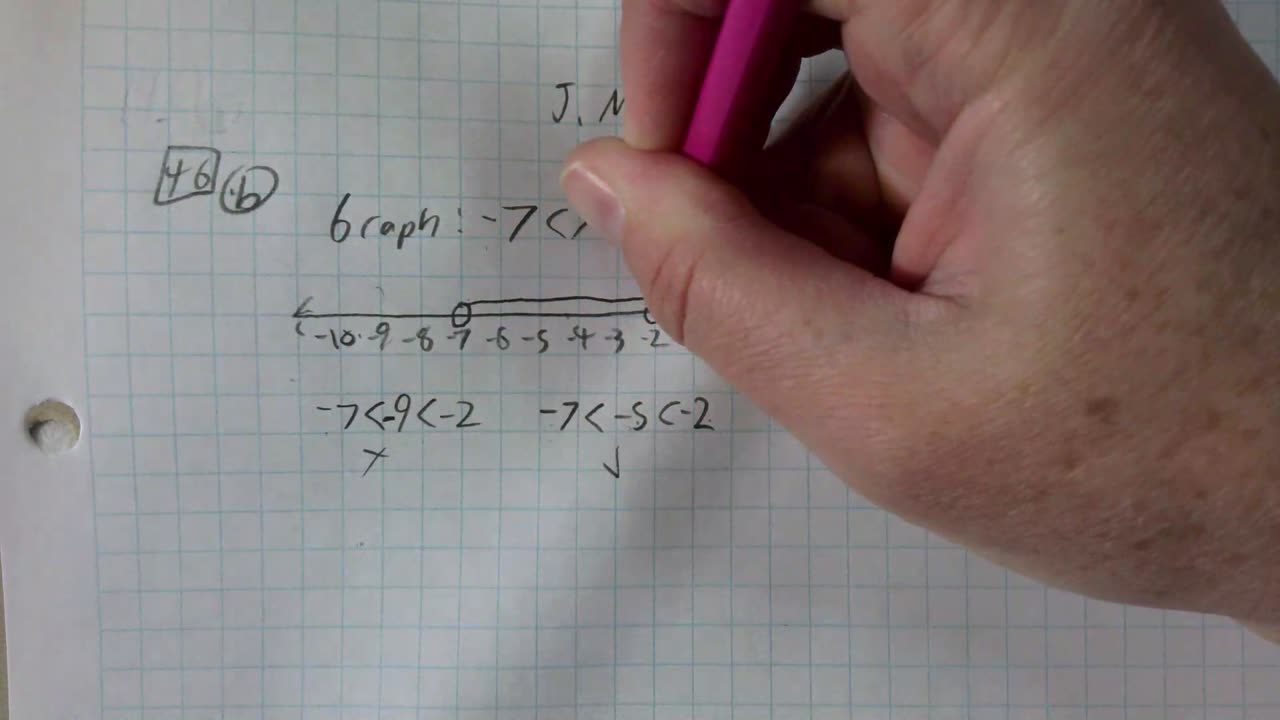 J. N
46 b
Graph: -7 <
-10 -9 -8 -7 -6 -5 -4 -3 -2
-7 < -9 < -2 -7 < -5 < -2
x √